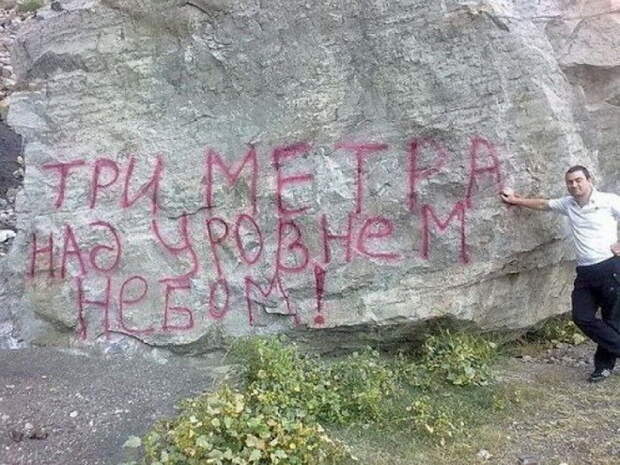 ТРИ МЕТРА
НАД УРОВНеМ
НеБОМ!